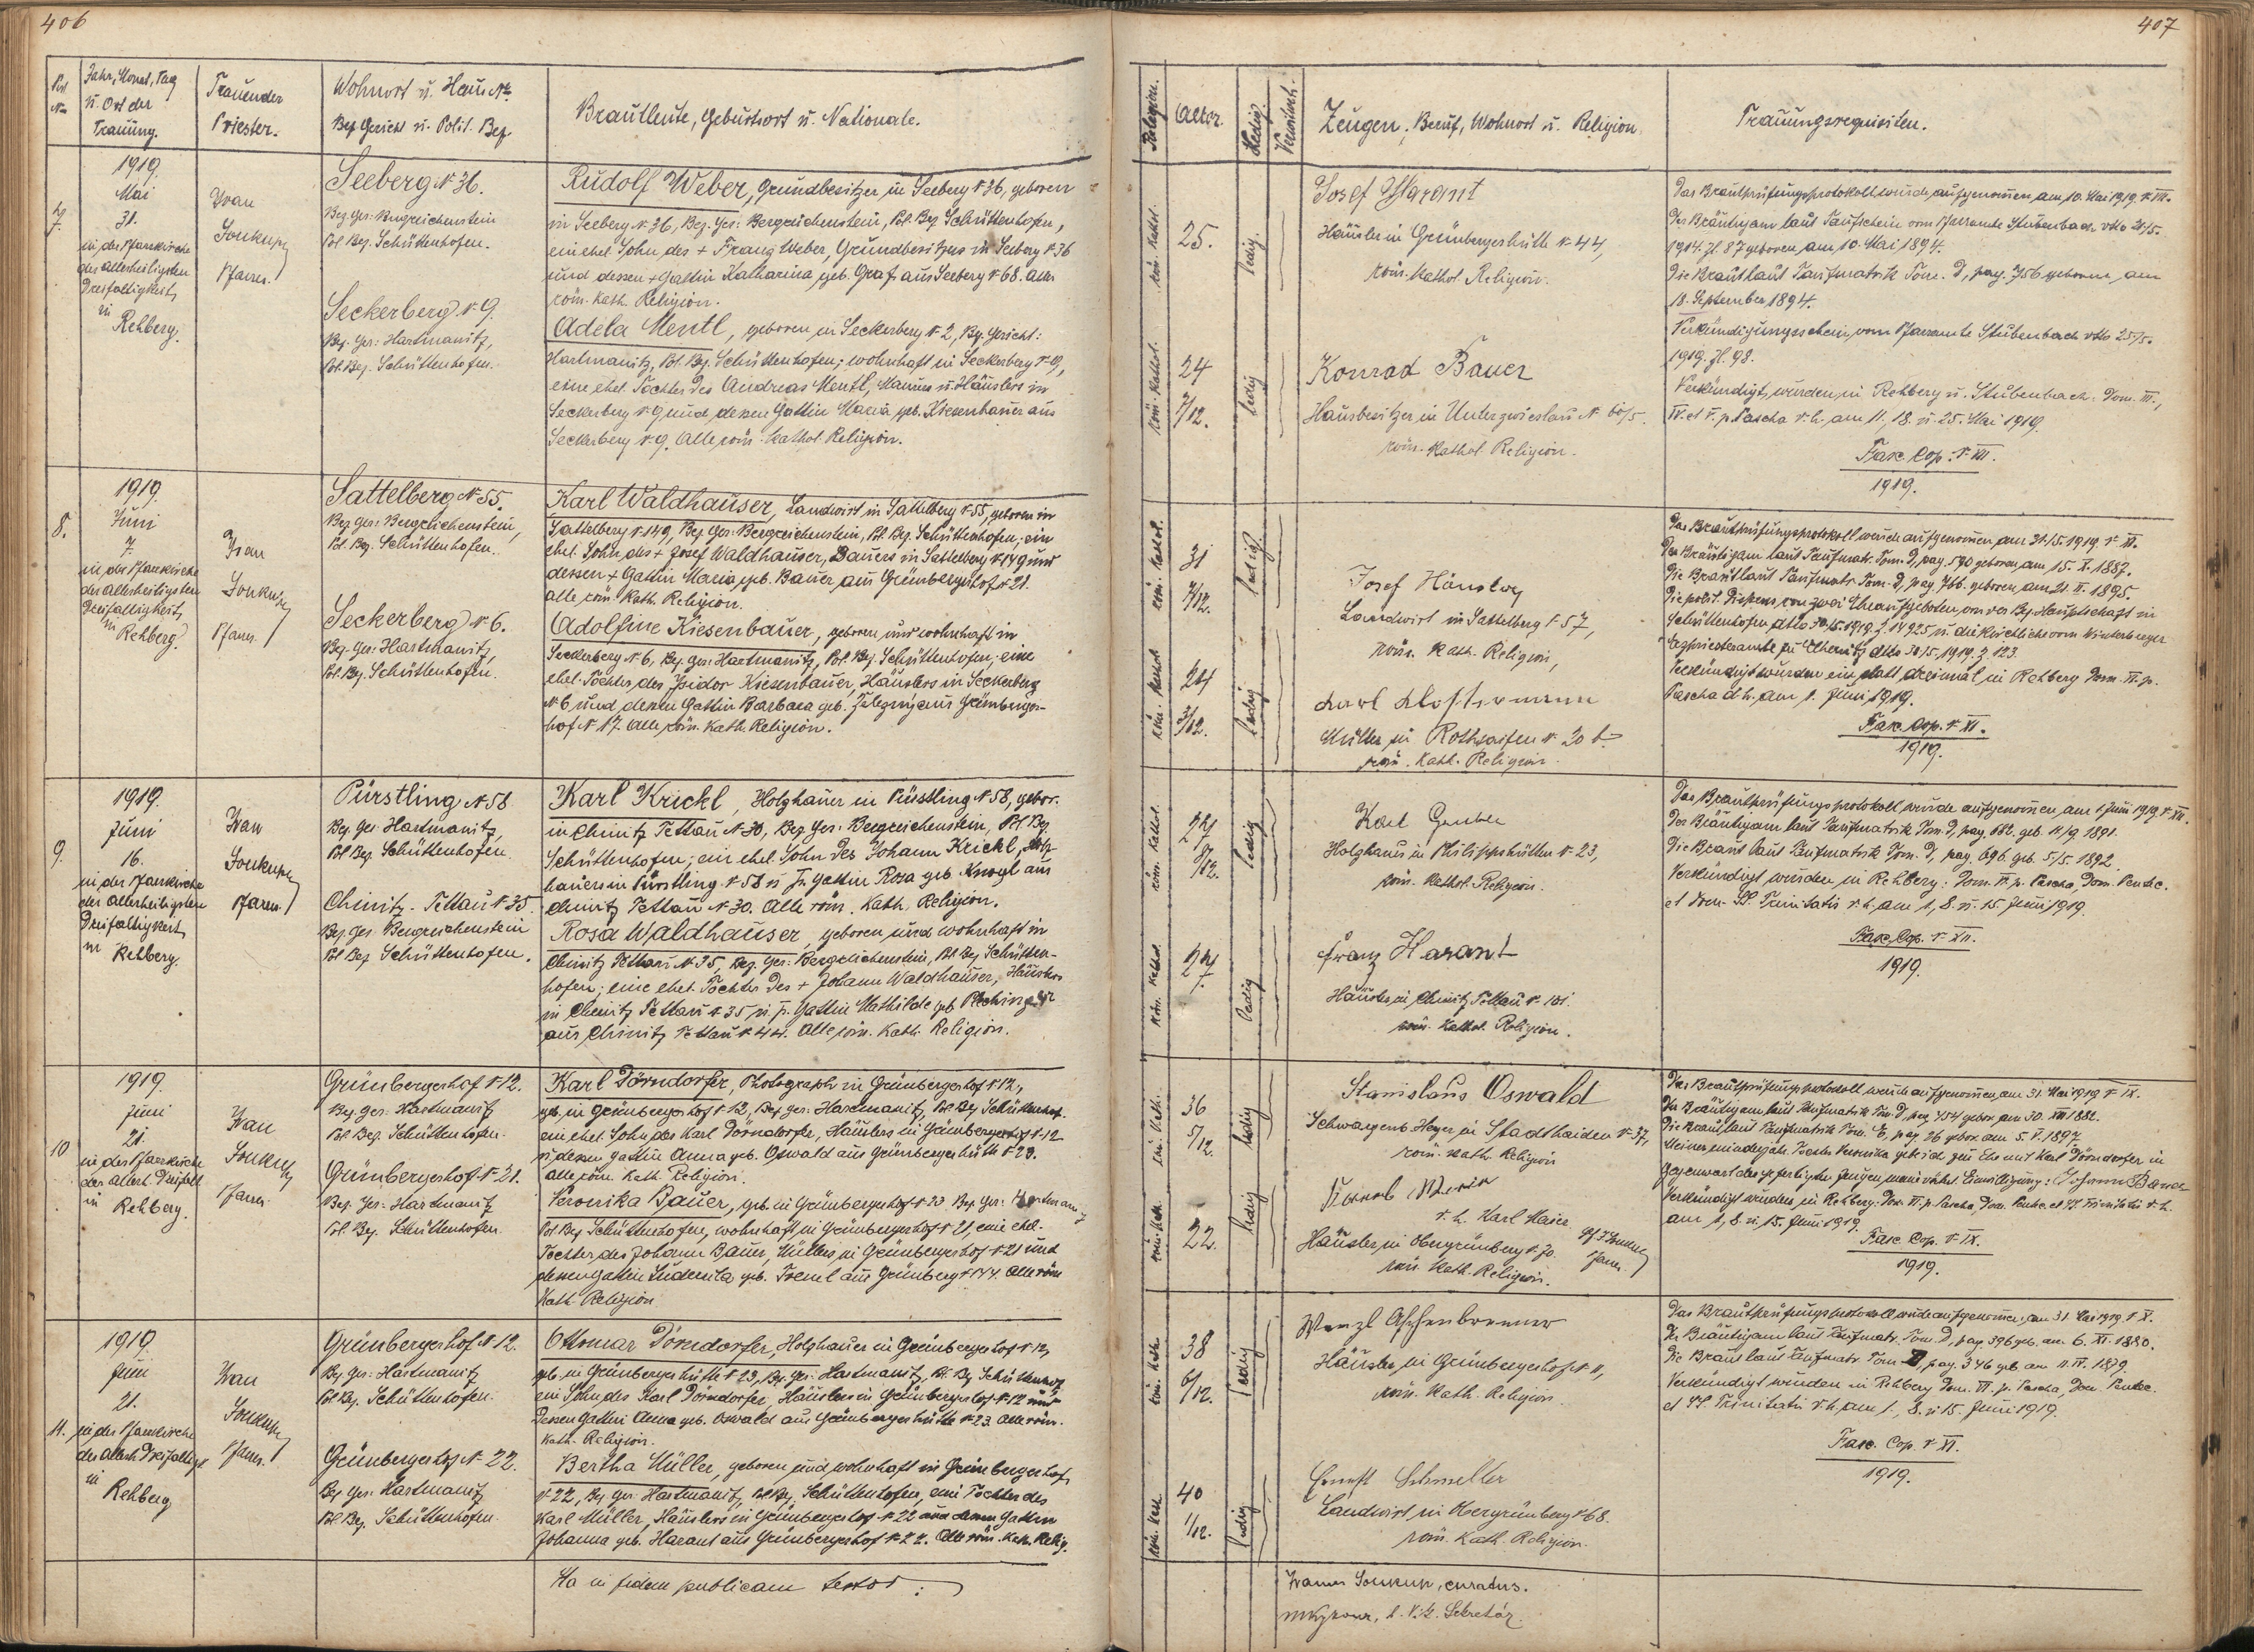 406
Post
No
Jahr, Monat, Tag
u. Ort der
Trauung.
Trauender
Priester.
Wohnort u. Haus No.
Bez. Gericht u. Polit. Bez.
Brautleute, Geburtsort u. Nationale.
7.
1919.
Mai
31.
in der Pfarrkirche
der allerheiligsten
Dreifaltigkeit
in
Rehberg.
Ivan
Soukup
Pfarrer.
Seeberg N 36.
Bez. Ger: Bergreichenstein
Pol. Bez. Schüttenhofen.
Seckerberg N 9.
Bez. Ger: Hartmanitz,
Pol. Bez. Schüttenhofen.
Rudolf Weber, Grundbesitzer in Seeberg N 36, geboren
in Seeberg N 36, Bez. Ger: Bergreichenstein, Pol. Bez. Schüttenhofen,
ein ehel. Sohn des + Franz Weber, Grundbesitzers in Seeberg N 36
und dessen + Gattin Katharina, geb. Graf aus Seeberg N 68. Alle
röm. kath. Religion.
Adela Mentl, geboren in Seckerberg N 2, Bez. Gericht:
Hartmanitz, Pol. Bez. Schüttenhofen; wohnhaft in Seckerberg N 9,
eine ehel. Tochter des Andreas Mentl, Maurers u. Häuslers in
Seckerberg N 9 und dessen Gattin Maria, geb. Kiesenbauer aus
Seckerberg N 9. Alle röm. kathol. Religion.
8.
1919.
Juni
7.
in der Pfarrkirche
der allerheiligsten
Dreifaltigkeit
in
Rehberg.
Ivan
Soukup
Pfarrer.
Sattelberg N 55.
Bez. Ger: Bergreichenstein,
Pol. Bez. Schüttenhofen.
Seckerberg N 6.
Bez. Ger: Hartmanitz,
Pol. Bez. Schüttenhofen.
Karl Waldhauser, Landwirt in Sattelberg N 55, geboren in
Sattelberg N 149, Bez. Ger: Bergreichenstein, Pol. Bez. Schüttenhofen; ein
ehel. Sohn des + Josef Waldhauser, Bauers in Sattelberg N 149 und
dessen + Gattin Maria, geb. Bauer aus Grünbergerhof N 21.
alle röm. kath. Religion.
Adolfine Kiesenbauer, geboren und wohnhaft in
Seckerberg N 6, Bez. Ger: Hartmanitz, Pol. Bez. Schüttenhofen; eine
ehel. Tochter des Isidor Kiesenbauer, Häuslers in Seckerberg
N 6 und dessen Gattin Barbara geb. aus Grünberger-
hof N 17. Alle röm. kath. Religion.
9.
1919.
Juni
16.
in der Pfarrkirche
der allerheiligsten
Dreifaltigkeit
in Rehberg.
Ivan
Soukup
Pfarrer.
Pürstling N 58
Bez. Ger. Hartmanitz,
Pol. Bez. Schüttenhofen.
Chinitz - Tettau N 35.
Bez. Ger. Bergreichenstein
Pol. Bez. Schüttenhofen.
Karl Krickl, Holzhauer in Pürstling N 58, gebor.
in Chinitz Tettau N 30, Bez. Ger: Bergreichenstein, Pol. Bez.
Schüttenhofen; ein ehel. Sohn des Johann Krickl, Holz-
hauers in Pürstling N 58 u. Gattin Rosa geb. aus
Chinitz Tettau N 30. Alle röm. kath. Religion.
Rosa Waldhauser, geboren und wohnhaft in
Chinitz Tettau N 35, Bez. Ger: Bergreichenstein, Pol. Bez. Schütten-
hofen; eine ehel. Tochter des + Johann Waldhauser, Häuslers
in Chinitz Tettau N 35 u. s. Gattin Mathilde geb.
aus Chinitz Tettau N 44. Alle röm. kath. Religion.
10
1919.
Juni
21.
in der Pfarrkirche
der allerh. Dreifalt.
in
Rehberg.
Ivan
Soukup
Pfarrer.
Grünbergerhof N 12.
Bez. Ger: Hartmanitz
Pol. Bez. Schüttenhofen.
Grünbergerhof N 21.
Bez. Ger: Hartmanitz
Pol. Bez. Schüttenhofen.
Karl Dörndorfer, Photograph in Grünbergerhof N 12,
geb. in Grünbergerhof N 12, Bez. Ger: Hartmanitz, Pol. Bez. Schüttenhof.
ein ehel. Sohn des Karl Dörndorfer, Häuslers in Grünbergerhof N 12
u. dessen Gattin Anna geb. Oswald aus Grünbergerhütte N 23.
alle röm. kath. Religion.
Veronika Bauer, geb. in Grünbergerhof N 23. Bez. Ger: Hartmanitz
Pol. Bez. Schüttenhofen, wohnhaft in Grünbergerhof N 21, eine ehel.
Tochter des Johann Bauer, Müllers in Grünbergerhof N 21 und
dessen Gattin Ludmila geb. aus Grünberg N 144. Alle röm.
kath. Religion
11.
1919.
Juni
21.
in der Pfarrkirche
der allerh. Dreifaltigk.
in
Rehberg
Ivan
Soukup
Pfarrer.
Grünbergerhof N 12.
Bez. Ger: Hartmanitz
Pol. Bez. Schüttenhofen.
Grünbergerhof N 22.
Bez. Ger: Hartmanitz
Pol. Bez. Schüttenhofen.
Ottomar Dörndorfer, Holzhauer in Grünbergerhof N 12,
geb. in Grünbergerhütte N 23, Bez. Ger: Hartmanitz, Pol. Bez. Schüttenhof.
ein Sohn des Karl Dörndorfer, Häuslers in Grünbergerhof N 12 und
dessen Gattin Anna geb. Oswald aus Grünbergerhütte N 23. Alle röm.
kath. Religion.
Bertha Müller, geboren und wohnhaft in Grünbergerhof
N 22, Bez. Ger. Hartmanitz, Pol. Bez. Schüttenhofen, eine Tochter des
Karl Müller, Häuslers in Grünbergerhof N 22 und dessen Gattin
Johanna geb. Harant aus Grünbergerhof N 22. Alle röm. kath. Relig.
Ita in fidem publicam testor:
407
Religion.
Alter.
Ledig.
Verwitwet.
Zeugen, Beruf, Wohnort u. Religion
Trauungsrequisiten.
röm. kathol.
25.
ledig.
röm. kathol.
24
7/12.
ledig
Josef Harant
Häusler in Grünbergerhütte N 44,
röm. kathol. Religion.
Konrad Bauer
Hausbesitzer in Unterzwieslau N 60/5.
röm. kathol. Religion.
Das Brautprüfungsprotokoll wurde aufgenommen am 10. Mai 1919. N VIII.
Der Bräutigam laut Taufschein vom Pfarramte Stubenbach dtto 20/5.
1914. Zl. 87 geboren am 10. Mai 1894.
Die Braut laut Taufmatrik Tom. D, pag. 756 geboren am
18. September 1894.
Verkündigungsschein vom Pfarramte Stubenbach dtto 25/5.
1919. Zl. 98.
Verkündigt wurden in Rehberg u. Stubenbach: Dom. III.,
IV. et V. p. Pascha d. h. am 11., 18. u. 25. Mai 1919.
Fasc. Cop. N VIII.
1919.
röm. kathol.
31
7/12.
ledig.
röm. kathol
24
3/12.
ledig
Josef
Landwirt in Sattelberg N 57,
röm. kath. Religion,
Karl Klostermann
Müller in Rothsaifen N 20
röm. kath. Religion.
Das Brautprüfungsprotokoll wurde aufgenommen am 31./5. 1919. N XI.
Der Bräutigam laut Taufmatr. Tom. D, pag. 590 geboren am 15. X. 1887.
Die Braut laut Taufmatr. Tom. D, pag. 766. geboren am 21. II. 1895.
Die polit. Dispens von zwei Eheaufgeboten von der Bez. Hauptschaft in
Schüttenhofen dtto 30./5. 1919. Z. 14925, u. die kirchliche vom Winterberger
dtto 30/5. 1919. Z. 123.
Verkündigt wurden ein statt dreimal in Rehberg Dom. VI. p.
Pascha d. h. am 1. Juni 1919.
Fasc. Cop. N XI.
1919.
röm. kathol.
27
8/12.
ledig
röm. kathol.
27.
ledig
Karl Gruber
Holzhauer in Philippshütten N 23,
röm. kathol. Religion.
Franz Harant
Häusler in Chinitz Tettau N 101.
röm. kathol. Religion.
Das Brautprüfungsprotokoll wurde aufgenommen am 1. Juni 1919. N XII.
Der Bräutigam laut Taufmatrik Tom. D, pag. 682. geb. 11/9. 1891.
Die Braut laut Taufmatrik Tom. D, pag. 696. geb. 5/5. 1892.
Verkündigt wurden in Rehberg: Dom. VI. p. Pascha, Dom. Pentec.
et Dom. SS. Trinitatis d. h. am 1., 8. u. 15. Juni 1919.
Fasc. Cop. N XII.
1919.
röm. kath.
36
5/12.
ledig
röm. kath.
22.
ledig
Stanislaus Oswald
Schwarzenb. Heger in Stadlhaiden N 37,
röm. kath. Religion
d. h. Karl Maier
Häusler in Obergrünberg N 70.
Pfarrer.
röm. kath. Religion.
Das Brautprüfungsprotokoll wurde aufgenommen am 31. Mai 1919 N IX.
Der Bräutigam laut Taufmatrik Tom. D, pag. 454 gebor. am 30. XII. 1882.
Die Braut laut Taufmatrik Tom. E, pag. 26 gebor. am 5. V. 1897.
Meiner minderjähr. Tochter Veronika gebe ich zur Ehe mit Karl Dörndorfer in
Gegenwart der gefertigten Zeugen meine väterl. Einwilligung: Johann Bauer
Verkündigt wurden in Rehberg: Dom. VI. p. Pascha, Dom. Pentec. et SS. Trinitatis d. h.
am 1., 8. u. 15. Juni 1919.
Fasc. Cop. N IX.
1919.
röm. kath.
38
6/12.
ledig
röm. kath.
40
1/12.
ledig
Wenzl Aschenbrenner
Häusler in Grünbergerhof N 11,
röm. kath. Religion.
Ernest Schmeller
Landwirt in Obergrünberg N 68.
röm. kath. Religion.
Das Brautprüfungsprotokoll wurde aufgenommen am 31. Mai 1919. N X.
Der Bräutigam laut Taufmatr. Tom. D, pag. 396 geb. am 6. XI. 1880.
Die Braut laut Taufmatr. Tom. D, pag. 346 geb. am 11. IV. 1879.
Verkündigt wurden in Rehberg Dom. VI. p. Pascha, Dom. Pentec.
et SS. Trinitatis d. h. am 1., 8. u. 15. Juni 1919.
Fasc. Cop. N XI.
1919.
Soukup, curatus.
Sekretár.